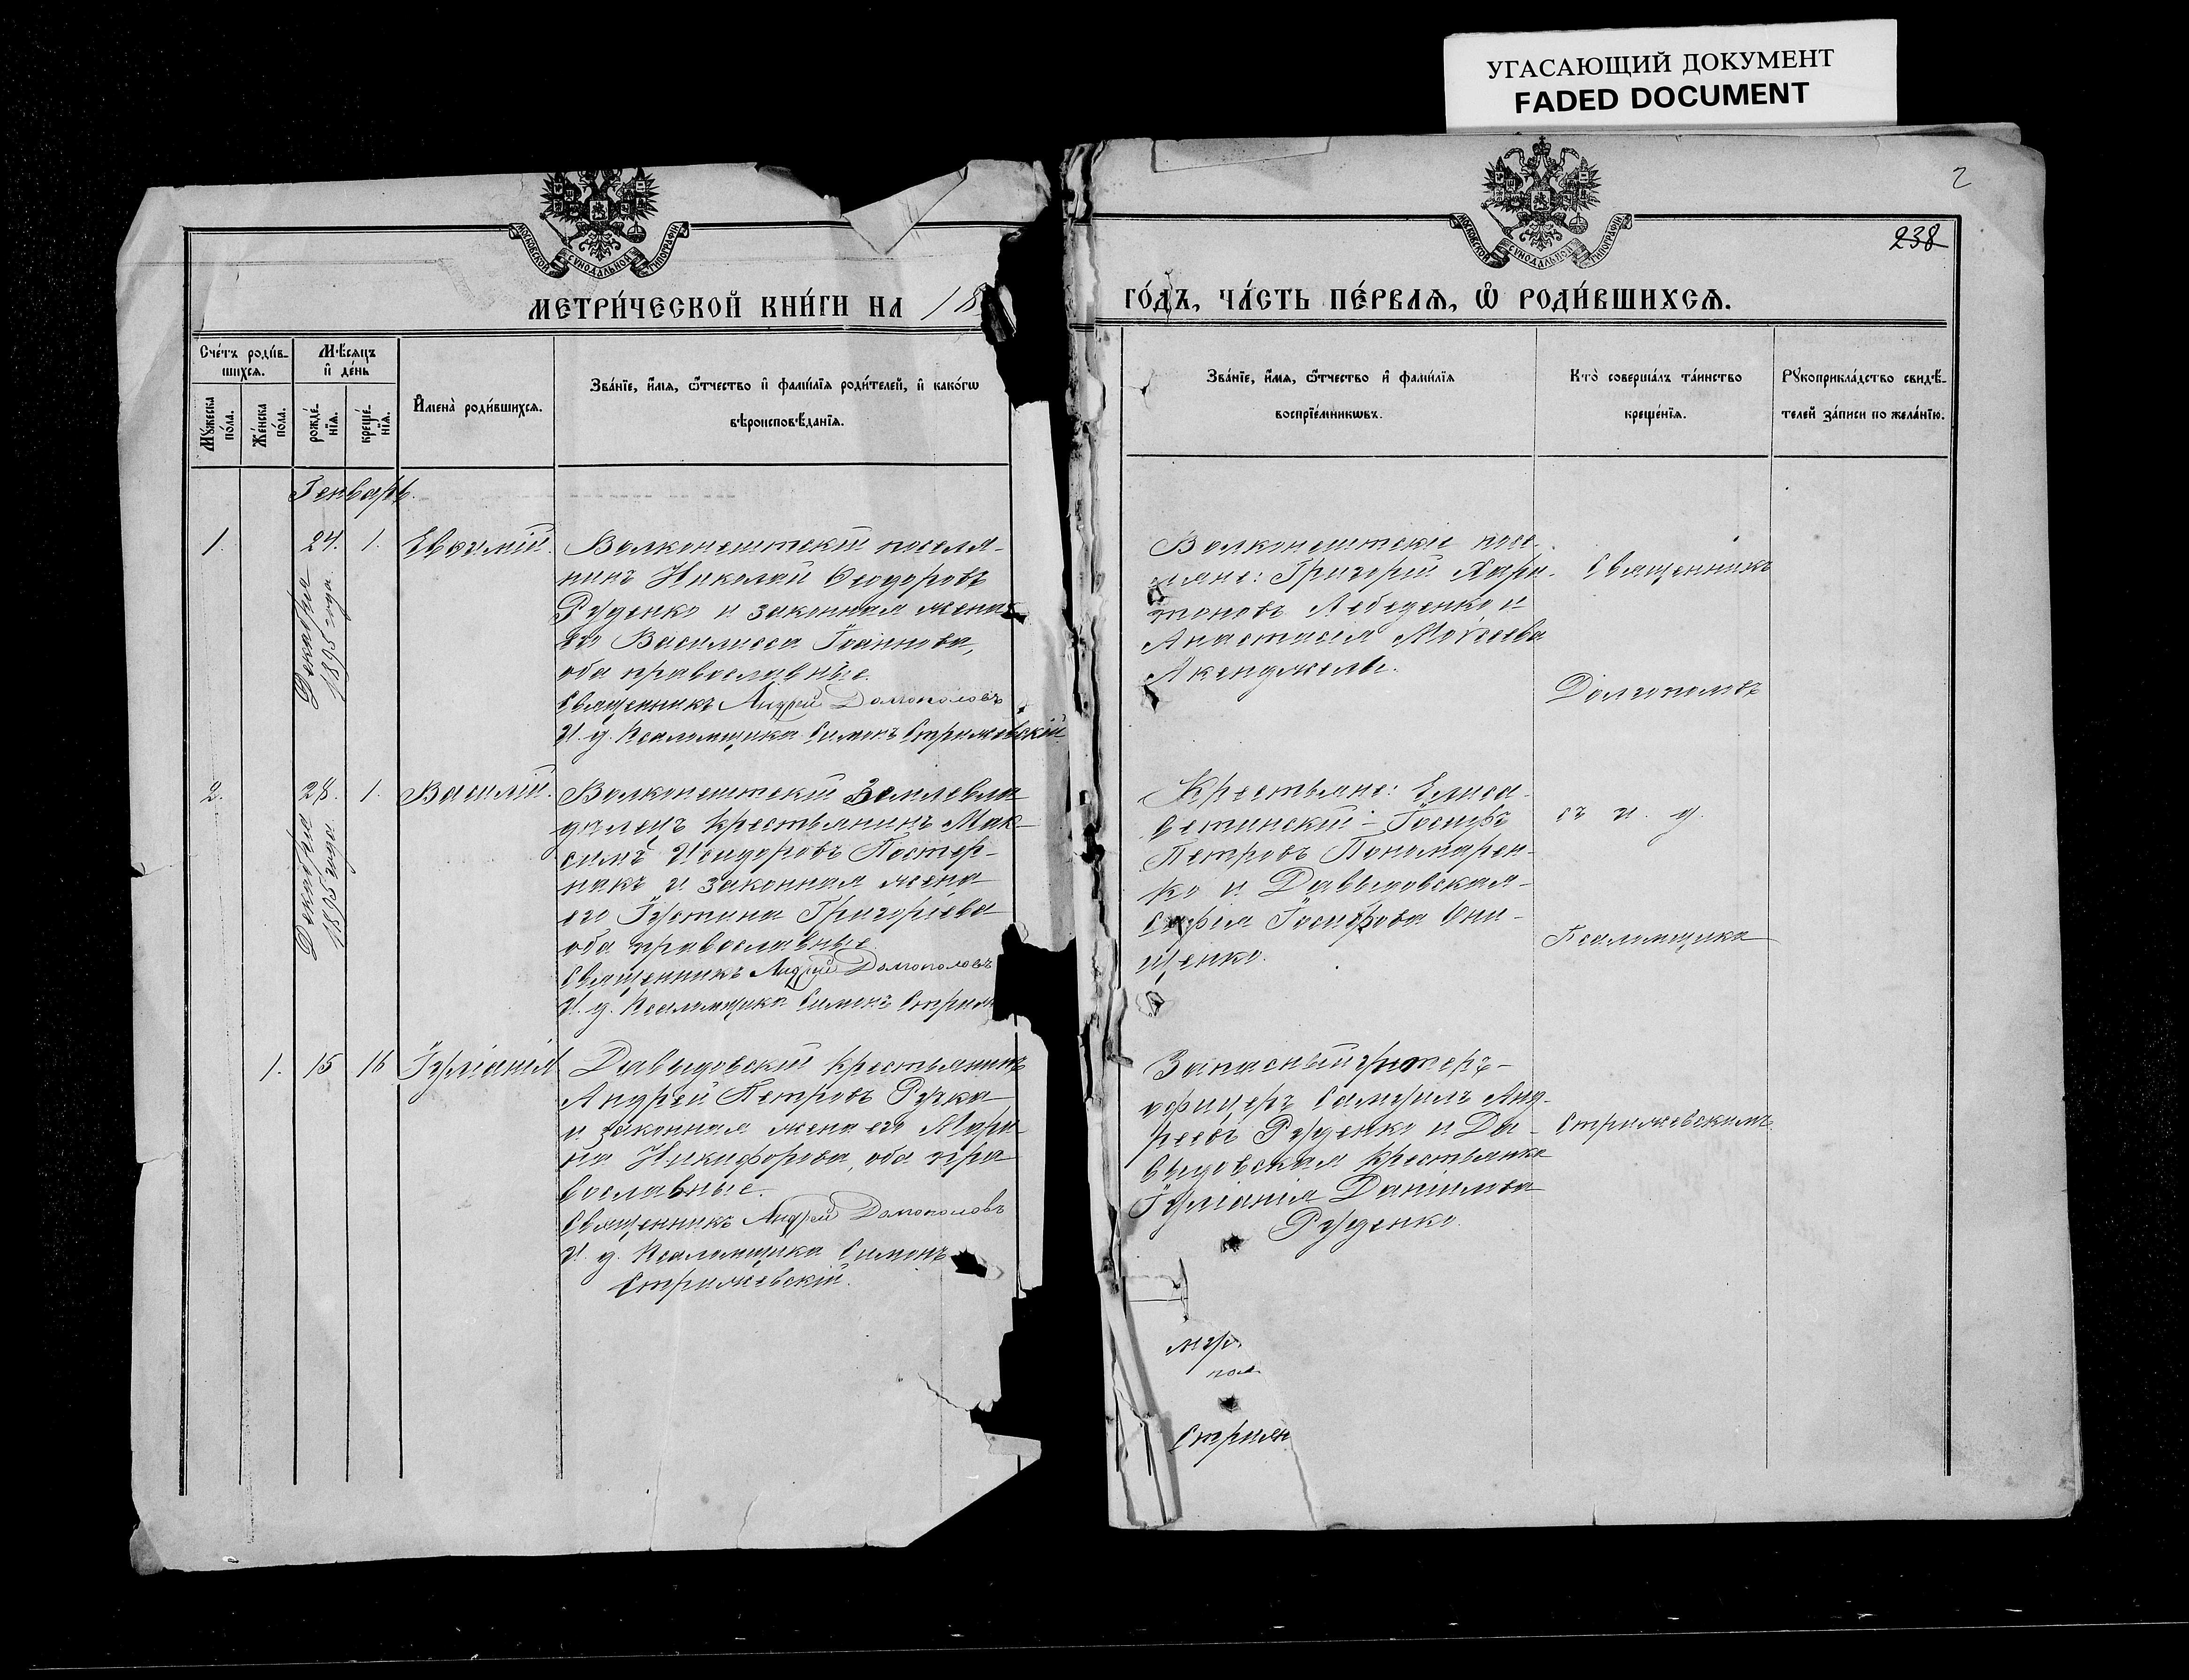 УГАСАЮЩИЙ ДОКУМЕНТ
FADED DOCUMENT
2
238
МОСКОВСКОЙ СѴНОДАЛЬНОЙ ТИПОГРАФІИ
МОСКОВСКОЙ СѴНОДАЛЬНОЙ ТИПОГРАФІИ
МЕТРИ́ЧЕСКОЙ КНИ́ГИ НА 18
ГО́ДЪ, ЧА́СТЬ ПЕ́РВАѦ, Ѡ РОДИ́ВШИХСѦ.
Сче́тъ роди́в-
шихсѧ.
Мѣ́сѧцъ
и де́нь
Мꙋ́жеска
по́ла.
Же́нска
по́ла.
рожде́-
нїѧ.
креще́-
нїѧ.
Имена̀ роди́вшихсѧ.
Зва́нїе, и́мѧ, ѻ҆́тчество и фами́лїѧ роди́телей, и како́гѡ
вѣроисповѣ́данїѧ.
Зва́нїе, и́мѧ, ѻ҆́тчество и фами́лїѧ
воспрїе́мникѡвъ.
Кто̀ соверша́лъ та́инство
креще́нїѧ.
Рꙋкоприкла́дство свидѣ́-
телей за́писи по жела́нїю.
Генварь.
1.
27.
Декабря
1895 года.
1.
Евѳимій.
Волконештскій поселя-
нинъ Николай Ѳеодоровъ
Руденко и законная жена
его Василисса Іоаннова,
оба православные.
Священникъ Андрей Долгополовъ
И. д. Псаломщика Симонъ Стрижевскій
Волконештскіе посе-
ляне: Григорій Хари-
тоновъ Лебеденко и
Анастасія Моѵсеева
Священникъ
Долгополовъ
2.
28.
Декабря
1895 года.
1.
Василій.
Волконештскій Землевла-
дѣлецъ крестьянинъ Мак-
симъ Исидоровъ Пастер-
накъ и законная жена
его Іустина Григоріева
оба православные
Священникъ Андрей Долгополовъ
И. д. Псаломщика Симонъ Стриж
Крестьяне: Елиса-
ветинскій - Іосифъ
Петровъ Пономарен-
ко и Давыдовская -
Софія Іосифова Они-
щенко.
съ и. д.
Псаломщика
1.
15
16
Іуліанія
Давыдовскій крестьянинъ
Андрей Петровъ Ручка
и законная жена его Мари-
на Никифорова, оба пра-
вославные.
Священникъ Андрей Долгополовъ
И. д. Псаломщика Симонъ
Стрижевскій.
Запасный унтеръ-
офицеръ Самуилъ Анд-
реевъ Руденко и Да-
выдовская крестьянка
Іуліанія Данилова
Руденко.
Стрижевскимъ
пол
Стриж